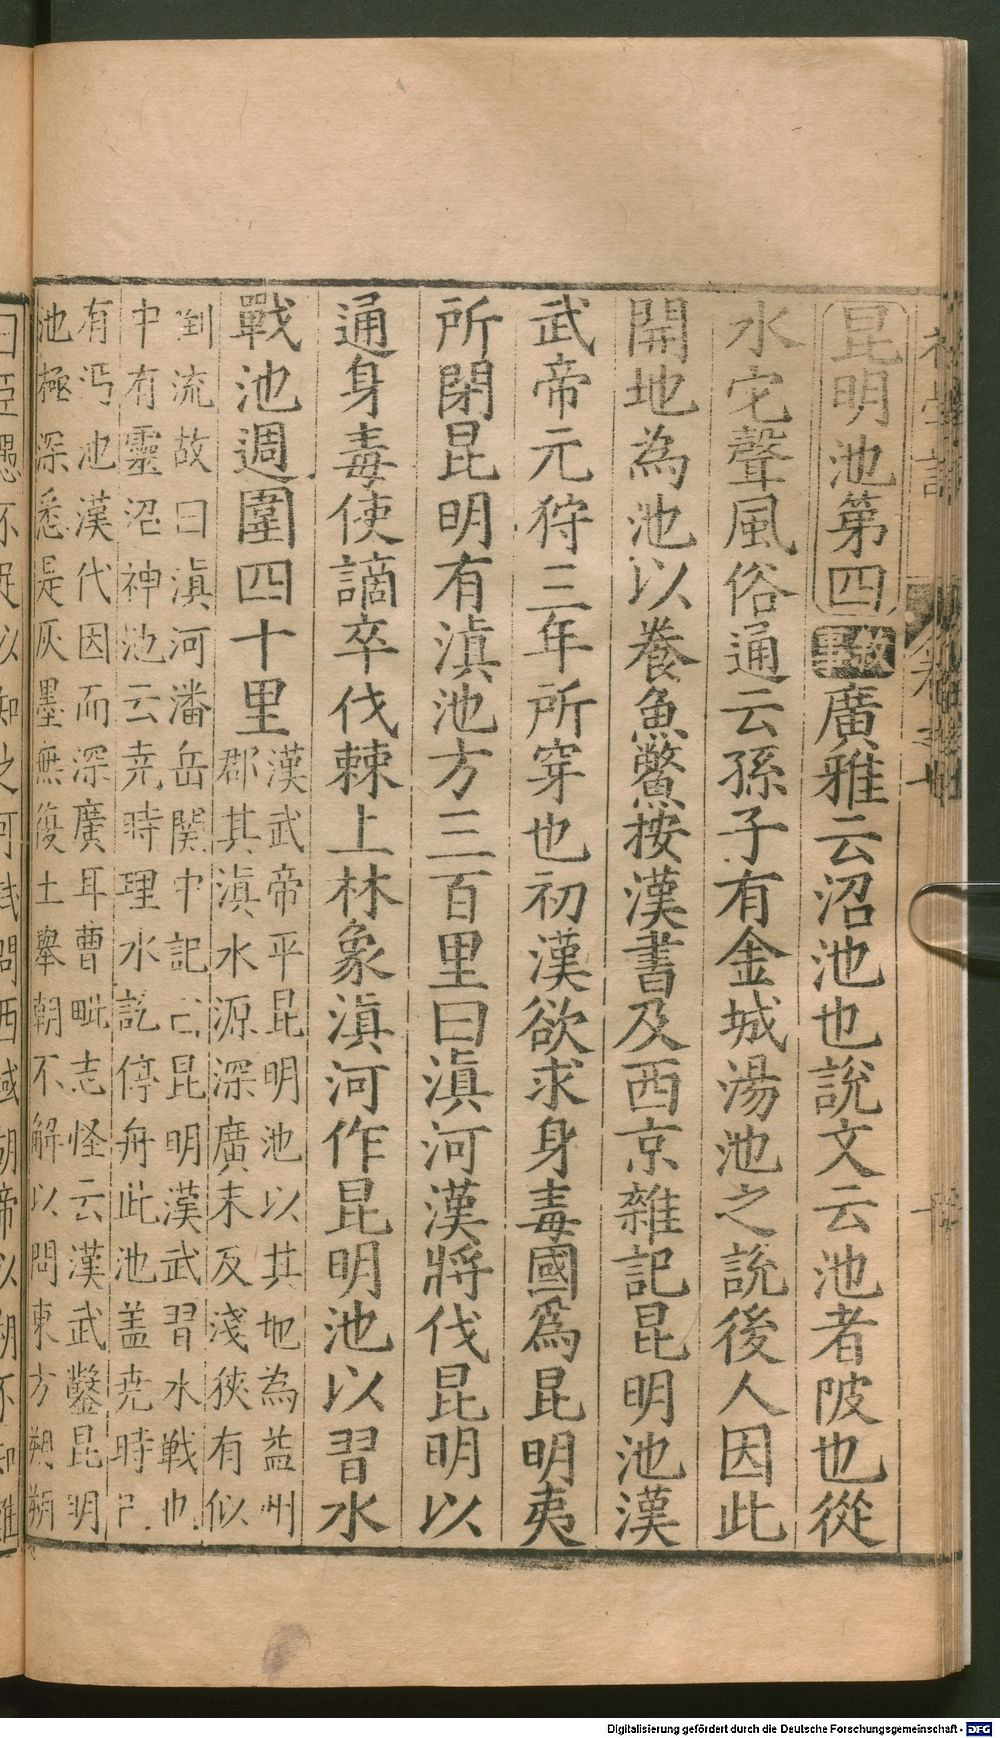 昆明池第四叙事廣雅云沼池也說文云池者陂也從
水它聲風俗通云孫子有金城湯池之說後人因此
開地為池以養魚鱉按漢書及西京雜記昆明池漢
武帝元狩三年所穿也初漢欲求身毒國爲昆明夷
所閉昆明有滇池方三百里曰滇河漢將伐昆明以
通身毒使謫卒伐棘上林象滇河作昆明池以習水
戰池週圍四十里
漢武帝平昆明池以其地為益州
郡其滇水源深廣末及淺狹有似
倒流故曰滇河潘岳関中記云昆明漢武習水戦也
中有靈沼神池云尭時理水訖停舟此池盖尭時已
有沔池漢代因而深廣耳曹毗志怪云漢武鑿昆明
池極深悉是灰墨無復土舉朝不解以問東方朔朔
曰臣愚不足以知之可試問西域胡帝以朔不知難
Digitalisierung gefördert durch die Deutsche Forschungsgemeinschaft - DFG